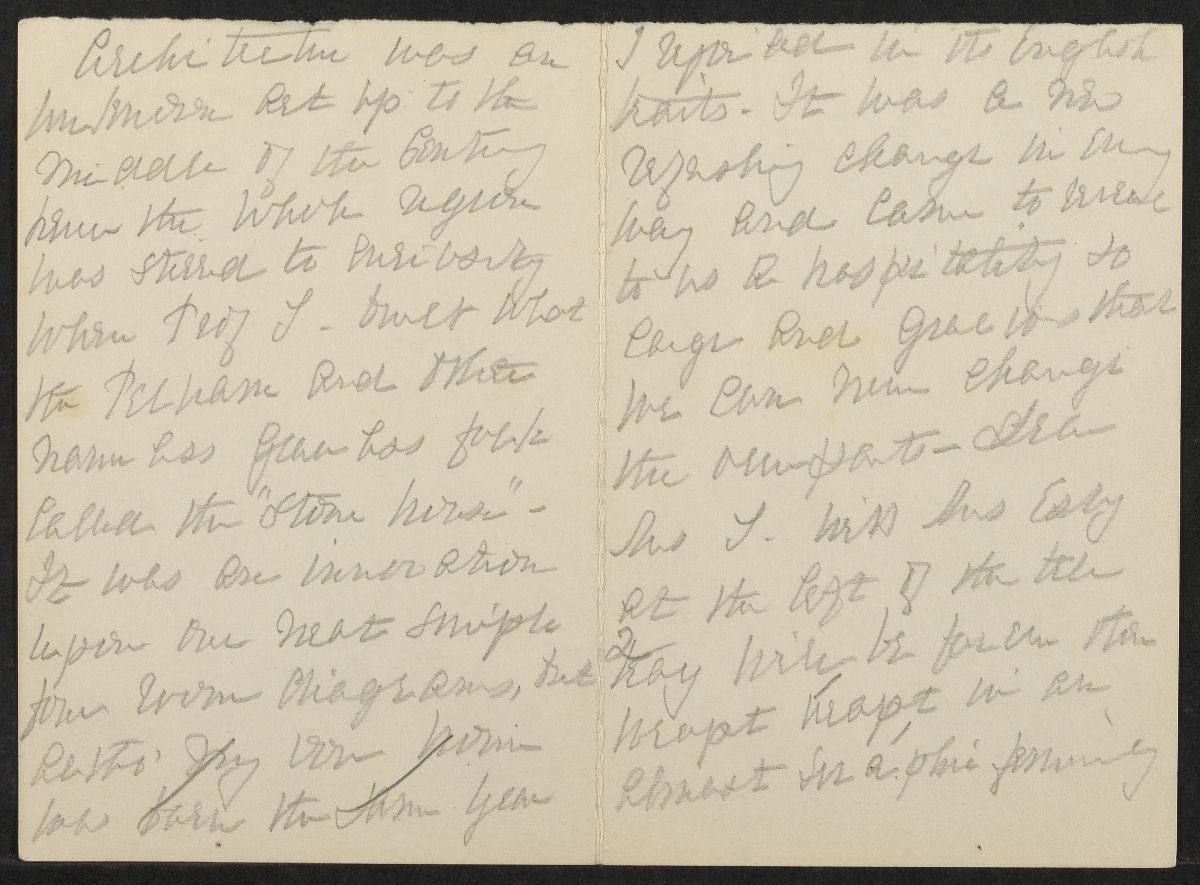 Architecture was an
unknown art up to the
middle of the Century
here the whole region
was stirred to curiosity
when Prof S - built what
the Pelham and other
nameless graceless folk
called the "Stone house" -
It was an innovation
upon our neat simple
four room diagrams, but
altho' my own home
was born the same year
I rejoiced in its English
traits - It was a new
refreshing change in every
way and came to
to us a hospitality so
large and gracious that
we can never change
the - Dear
Mrs S. with Mrs Esty
at the left of the tea
tray will be for ever there
wrapt in an
almost seraphic